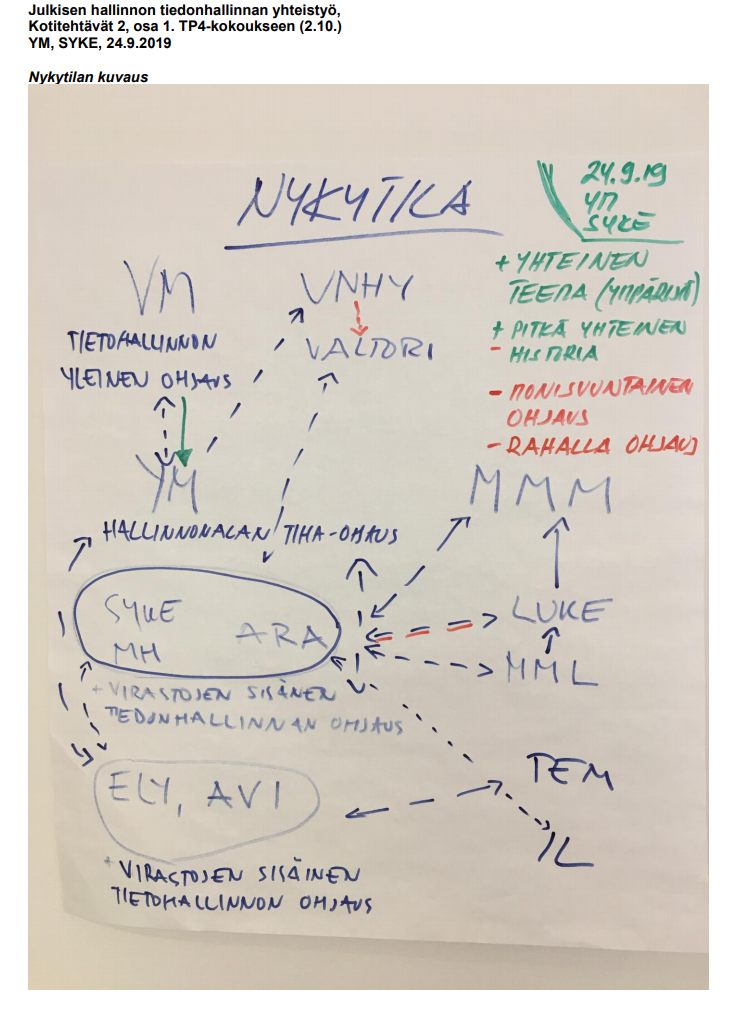 Julkisen hallinnon tiedonhallinnan yhteistyö,
Kotitehtävät 2, osa 1. TP4-kokoukseen (2.10.)
YM, SYKE, 24.9.2019
Nykytilan kuvaus
NYKYTILA
24.9.19
YM
SYKE
+ YHTEINEN
TEEMA (YMPÄRISTÖ)
+ PITKÄ YHTEINEN
- HISTORIA
- MONISUUNTAINEN
OHJAUS
- RAHALLA OHJAUS
VM
TIETOHALLINNON
YLEINEN OHJAUS
VNHY
VALTORI
YM
HALLINNONALAN TIHA-OHJAUS
MMM
SYKE
MH
ARA
LUKE
MML
+ VIRASTOJEN SISÄNEN
TIEDONHALLINNAN OHJAUS
ELY, AVI
TEM
IL
+ VIRASTOJEN SISÄINEN
TIETOHALLINNON OHJAUS